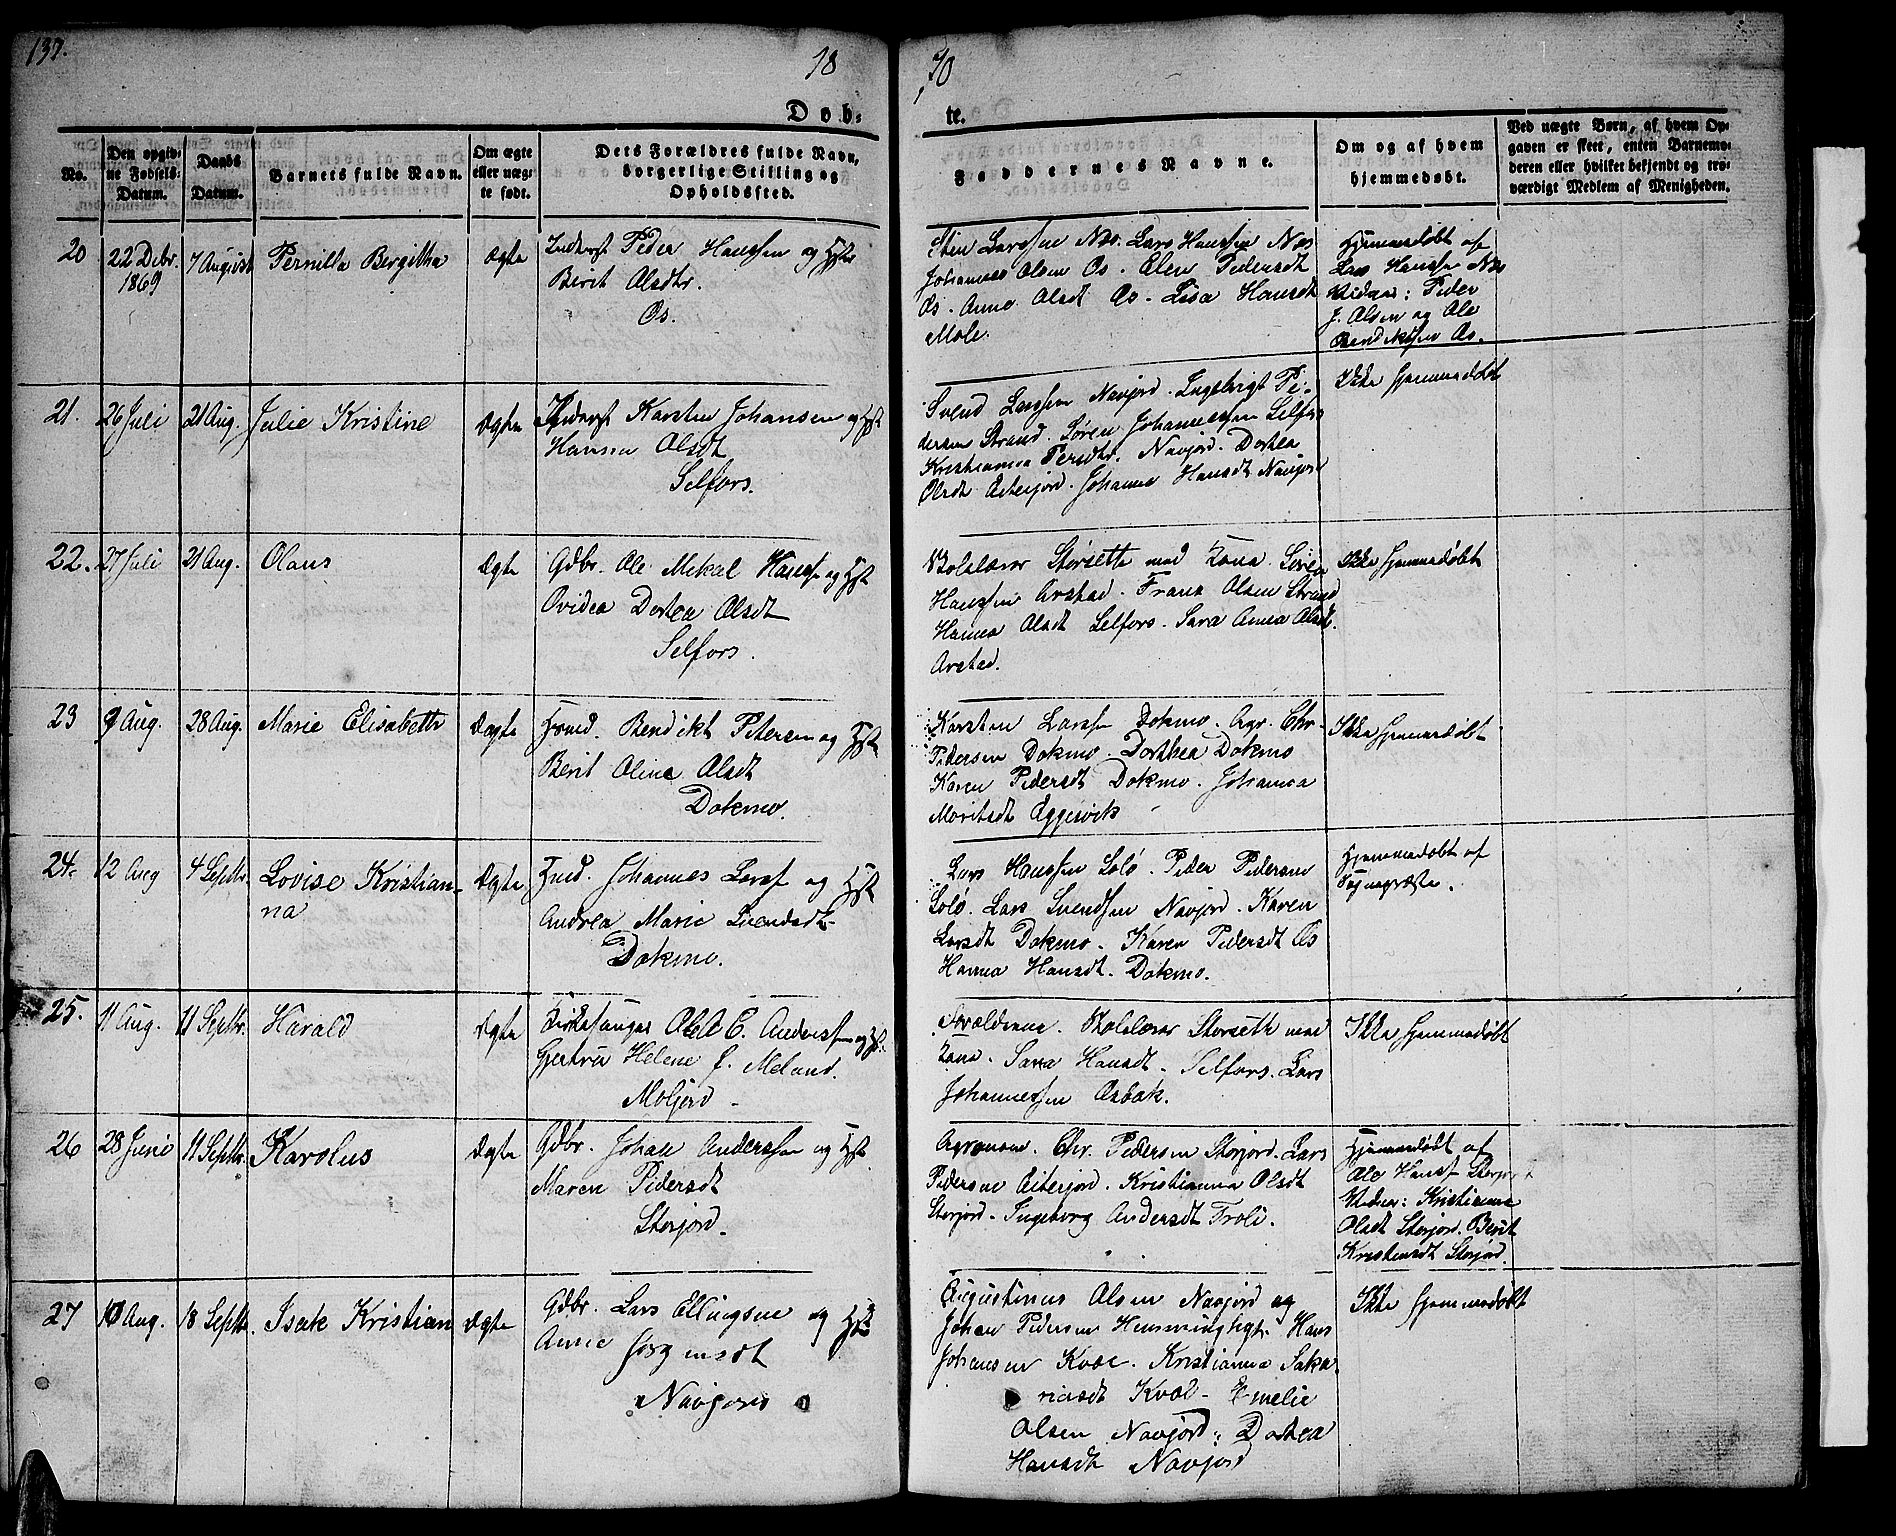 137.
18
70
Døb-
te.
No.
Den opgiv-
ne Fødsels-
Datum.
Daabs
Datum.
Barnets fulde Navn.
Om ægte
eller uæg-
te født.
Dets Forældres fulde Navn,
borgerlige Stilling og
Opholdssted.
Faddernes Navne.
Om og af hvem
hjemmedøbt.
Ved uægte Børn, af hvem Op-
gaven er skeet, enten Barnemo-
deren eller hvilket bekjendt og tro-
værdigt Medlem af Menigheden.
20
22 Debr.
1869
7 August
Pernilla Bergitha
Ægte
Inderst Peder Hanssen og Hst
Berit Olsdtr.
Os.
Sten Larssen Næs. Lars Hanssen Næs
Johannes Olsen Os. Elen Pedersdt
Os. Anna Olsdt Os. Lisa Hansdt
Mole.
Hjemmedøbt af
Lars Hanssen Næs
Vidner: Peder
J. Olsen og Ole
Bendiktsen Os.
21.
26 Juli
21 Aug.
Julie Kristine
Ægte
Inderst Karsten Johansen og Hst
Hanna Olsdt
Selfors.
Svend Larssen Navjord. Ingebrigt Pe-
dersen Strand. Søren Johannessen Selfors
Kristianna Persdtr. Navjord. Dortea
Olsdt Eiterjord. Johanna Hansdt Navjord
Ikke hjemmedøbt
22.
27 Juli
21 Aug.
Olaus
Ægte
Gdbr. Ole Mekal Hanss. og Hst
Ovidea Dortea Olsdt
Selfors.
Skolelærer Storseth med Kona. Søren
Hanssen Arstad. Frans Olsen Strand
Hanna Olsdt Selfors. Sara Anna Olsdt.
Arstad.
Ikke hjemmedøbt
23
9 Aug.
28 Aug.
Marie Elisabeth
Ægte
Hsmd. Bendikt Petersen og Hst
Berit Olina Olsdt
Dokmo.
Karsten Larss. Dokmo. Agr. Chr.
Pedersen Dokmo. Dorthea Dokmo
Karen Pedersdt Dokmo. Johanna
Moritsdt Eggesvik
Ikke hjemmedøbt
24.
12 Aug
4 Septbr.
Lovise Kristian-
na
Ægte
Hsmd. Johannes Larss. og Hst
Andrea Marie Svendsdt.
Dokmo.
Lars Hanssen Solø. Peder Pedersen
Solø. Lars Svendsen Navjord. Karen
Larsdt Dokmo. Karen Pedersdt Os
Hanna Hansdt. Dokmo.
Hjemmedøbt af
Sognepræsten.
25.
11 Aug.
11 Septbr.
Harald
Ægte
Kirkesanger Ole E. Anderssen og Hst.
Gjertru Helene f. Meland.
Moljord
Forældrene. Skolelærer Storseth med
Kona. Sara Hansdt. Selfors. Lars
Johannessen Osbak.
Ikke hjemmedøbt
26
28 Juni
11 Septbr.
Karolus
Ægte
Gdbr. Johan Anderssen og Hst
Maren Pedersdt
Storjord.
Agronom. Chr. Pedersen Storjord. Lars
Pedersen Eiterjord. Kristianna Olsdt
Storjord. Ingeborg Andersdt Troli.
Hjemmedøbt af
Ole Hanss. Storjord
Vidner: Kristianna
Olsdt Storjord. Berit
Kristensdt Storjord.
27
10 Aug.
18 Septbr.
Isak Kristian
Ægte
Gdbr. Lars Ellingsen og Hst
Anne Jørgensdt
Navjord
Augustinus Olsen Navjord og
Johan Pedersen Hemminghyt. Hans
Johansen Kvæl. Kristianna Saka-
riasdt Kvæl. Emelie
Olsen Navjord. Dortea
Hansdt Navjord
Ikke hjemmedøbt